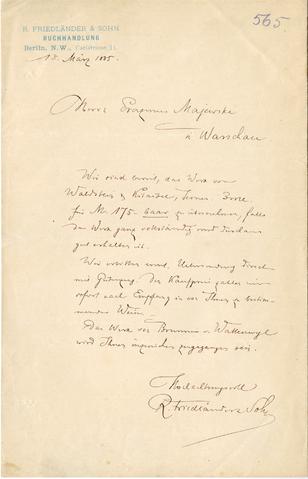 565.
R. FRIEDLÄNDER & SOHN
BUCHHANDLUNG
Berlin, N.W., Carlstrasse 11.
13. März 1885
Herrn Erazmus Majewski
in Warschau
Wir sind bereit, das Werk von
Waldstein & Kitaibel, 3 Bde.
für Mk 175- baar zu übernehmen, falls
das Werk ganz vollständig und durchaus
gut erhalten ist.
Wir erbitten Uebersendung direct
mit Der Kaufpreis
sofort nach Empfang in von Ihnen zu bestim-
mender Weise.
Das Werk von Brunner v. Wattenwyl
wird Ihnen inzwischen zugegangen sein.
Hochachtungsvoll
R. Friedländer & Sohn